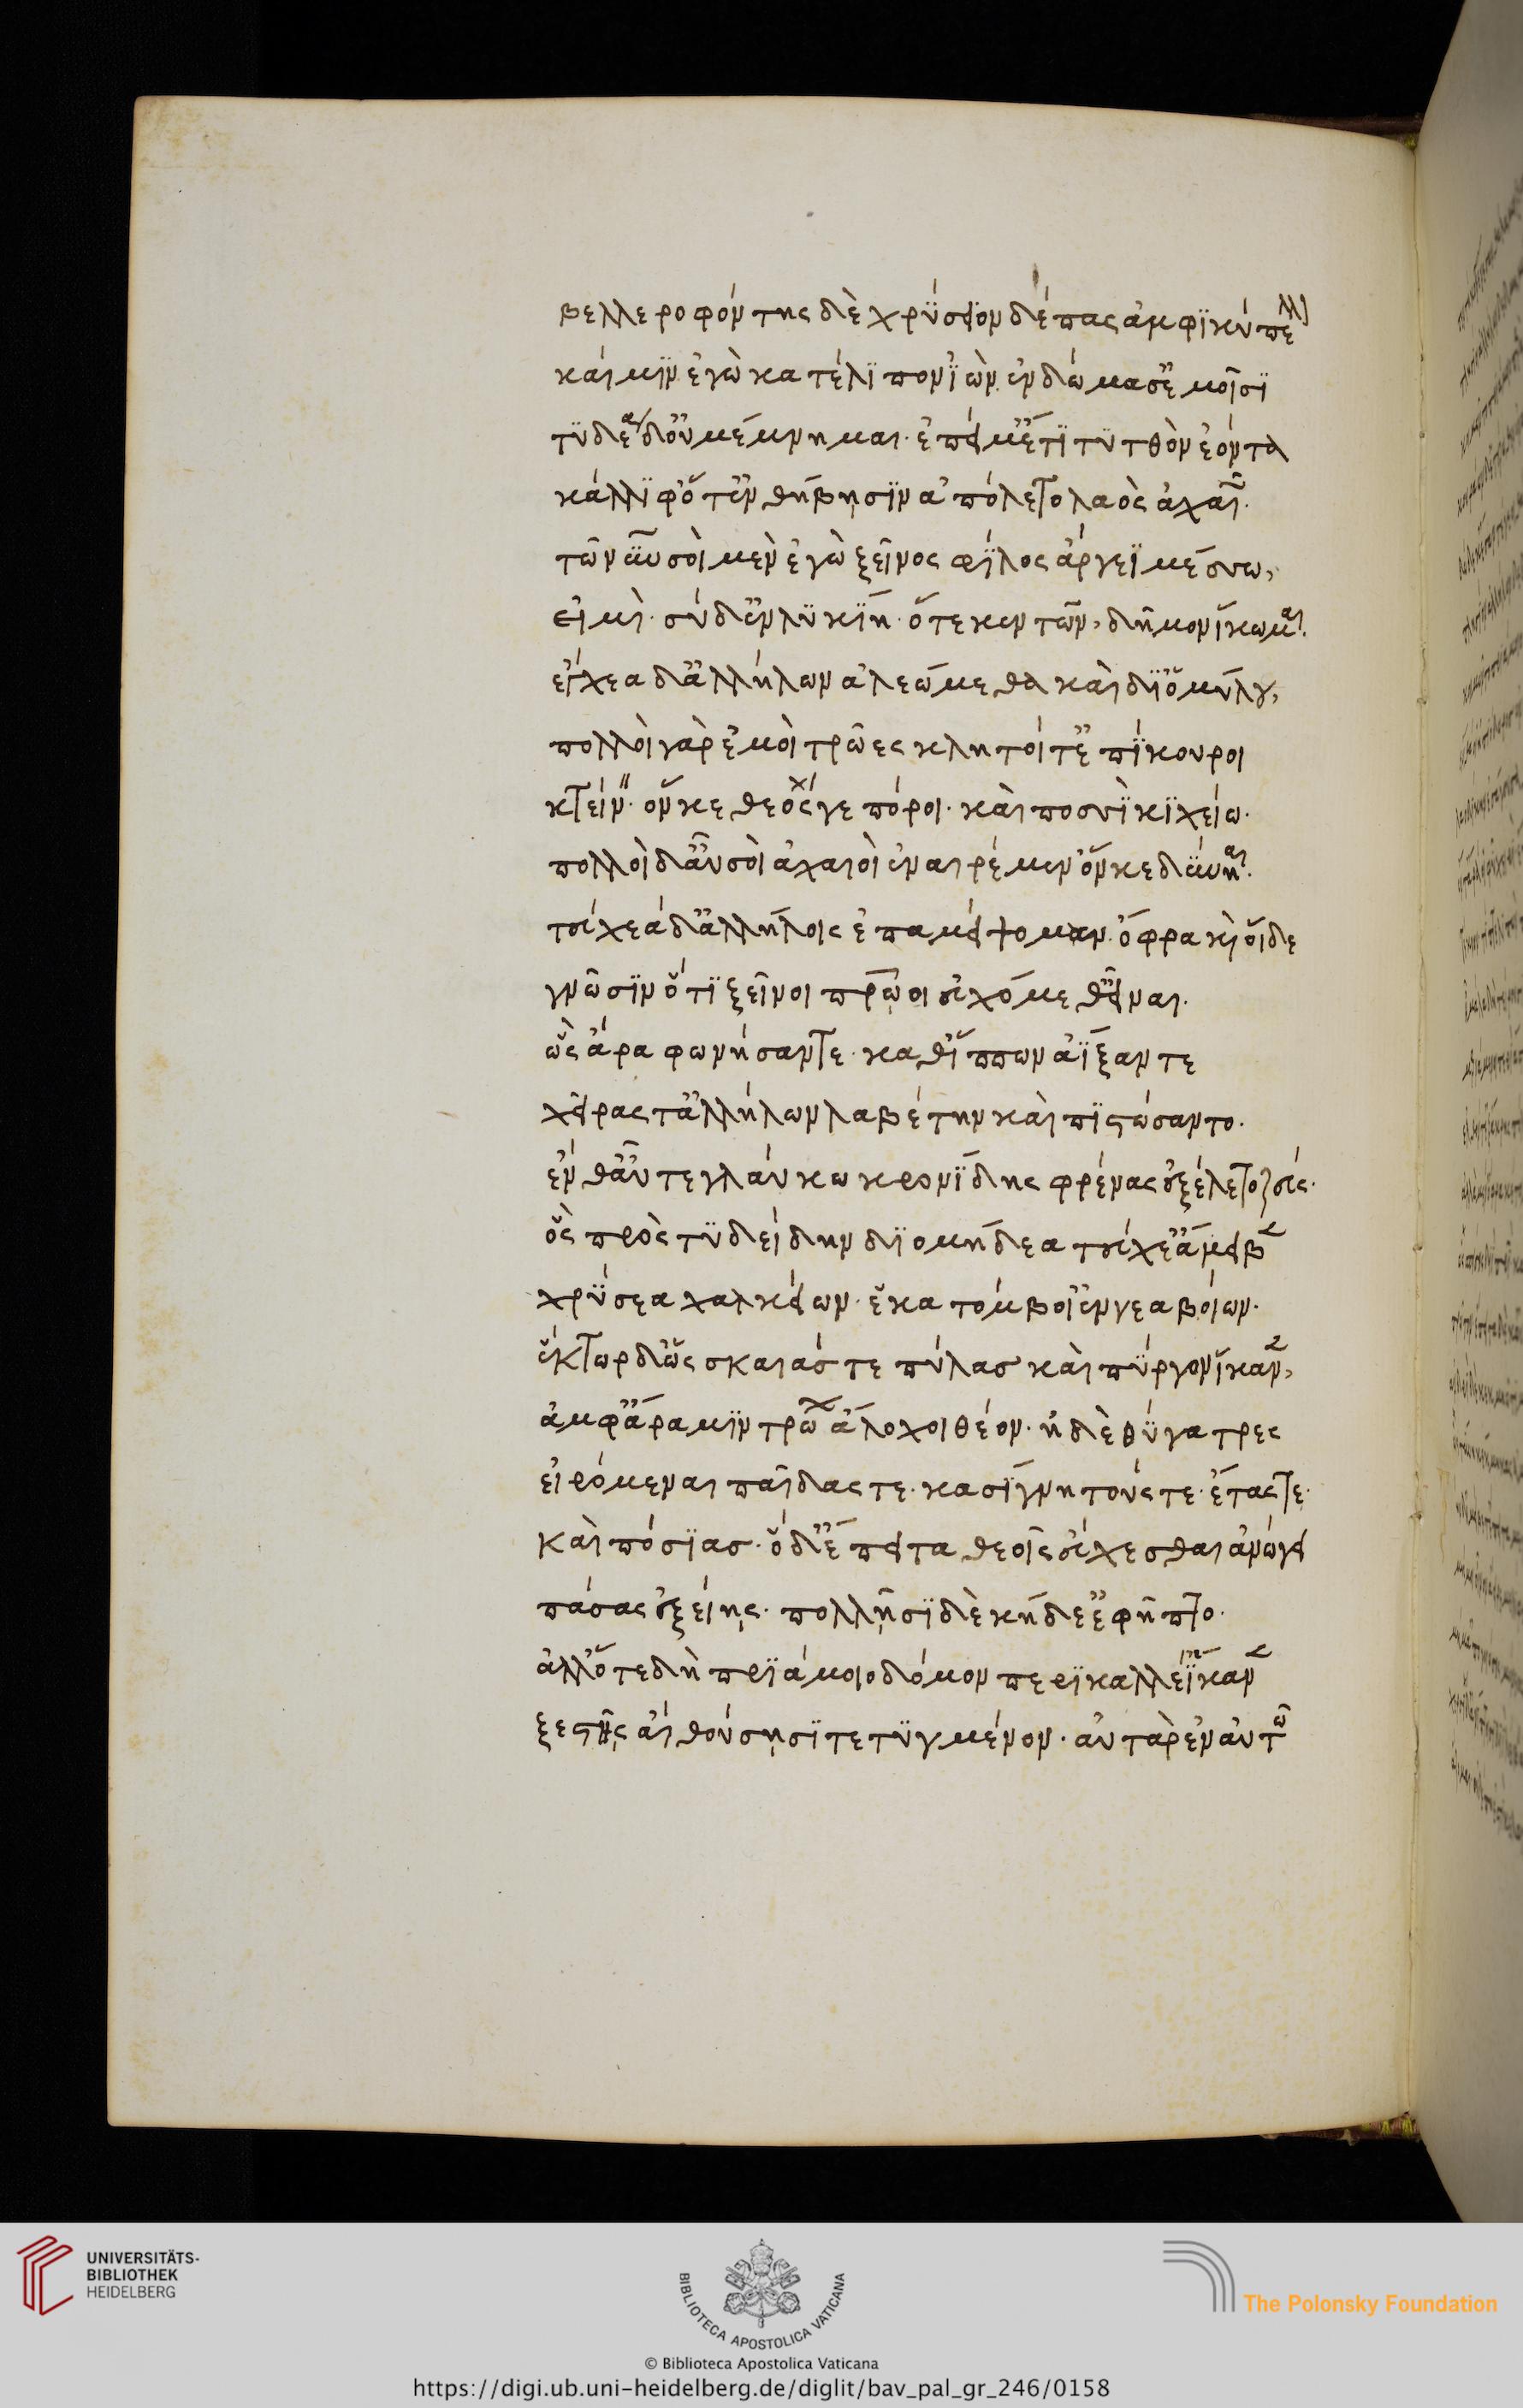 βελλεροφόντης δὲ χρύσειον δέπας ἀμφικύπελλ
καί μιν ἐγὼ κατέλιπον ἰὼν ἐν δώμασ' ἐμοῖσι
τυδέα δ' οὐ μέμνημαι· ἐπεί μ' ἔτι τυτθὸν ἐόντα
κάλλιφ' ὅτ' ἐν θήβησιν ἀπόλετο λαὸς ἀχαιῶν·
τῶν αῦ σοὶ μὲν ἐγὼ ξεῖνος φίλος ἄργεϊ μέσσω,
εἰμὶ· σὺ δ' ἐν λυκίη· ὅτε κεν τῶν, δῆμον ἵκωμαι·
ἔγχεα δ' ἀλλήλων ἀλεώμεθα καὶ δι' ὁμίλου,
πολλοὶ γὰρ ἐμοὶ τρῶες κλητοί τ' ἐπίκουροι
κτείνειν· ὅν κε θεός γε πόροι· καὶ ποσσὶ κιχείω·
πολλοὶ δ' αὖ σοὶ ἀχαιοὶ ἐναιρέμεν ὅν κε δύνηαι·
τεύχεα δ' ἀλλήλοις ἐπαμείψομεν· ὄφρα καὶ οἵδε
γνῶσιν ὅτι ξεῖνοι πατρώϊοι εὐχόμεθ' εἶναι·
ὣς ἄρα φωνήσαντε· καθ' ἵππων ἀΐξαντε
χεῖράς τ' ἀλλήλων λαβέτην καὶ πιστώσαντο·
ἔνθ' αὖτε γλαύκω κρονίδης φρένας ἐξέλετο ζεύς·
ὃς πρὸς τυδείδην διομήδεα τεύχε' ἄμειβε
χρύσεα χαλκείων· ἑκατόμβοι' ἐννεαβοίων·
ἕκτωρ δ' ὡς σκαιάς τε πύλας καὶ πύργον ἵκανεν,
ἀμφ' ἄρα μιν τρώων ἄλοχοι θέον· ἠδὲ θύγατρες
εἰρόμεναι παῖδάς τε· κασιγνήτους τε· ἔτας τε·
καὶ πόσιας· ὁ δ' ἔπειτα θεοῖς εὔχεσθαι ἀνώγει
πάσας ἐξείης· πολλῇσι δὲ κήδε' ἐφῆπτο·
ἀλλ' ὅτε δὴ πριάμοιο δόμον περικαλλέ' ἵκανε
ξεστῇς αἰθούσησι τετυγμένον· αὐτὰρ ἐν αὐτῶ
UNIVERSITÄTS-
BIBLIOTHEK
HEIDELBERG
BIBLIOTECA APOSTOLICA VATICANA
The Polonsky Foundation
© Biblioteca Apostolica Vaticana
https://digi.ub.uni-heidelberg.de/diglit/bav_pal_gr_246/0158